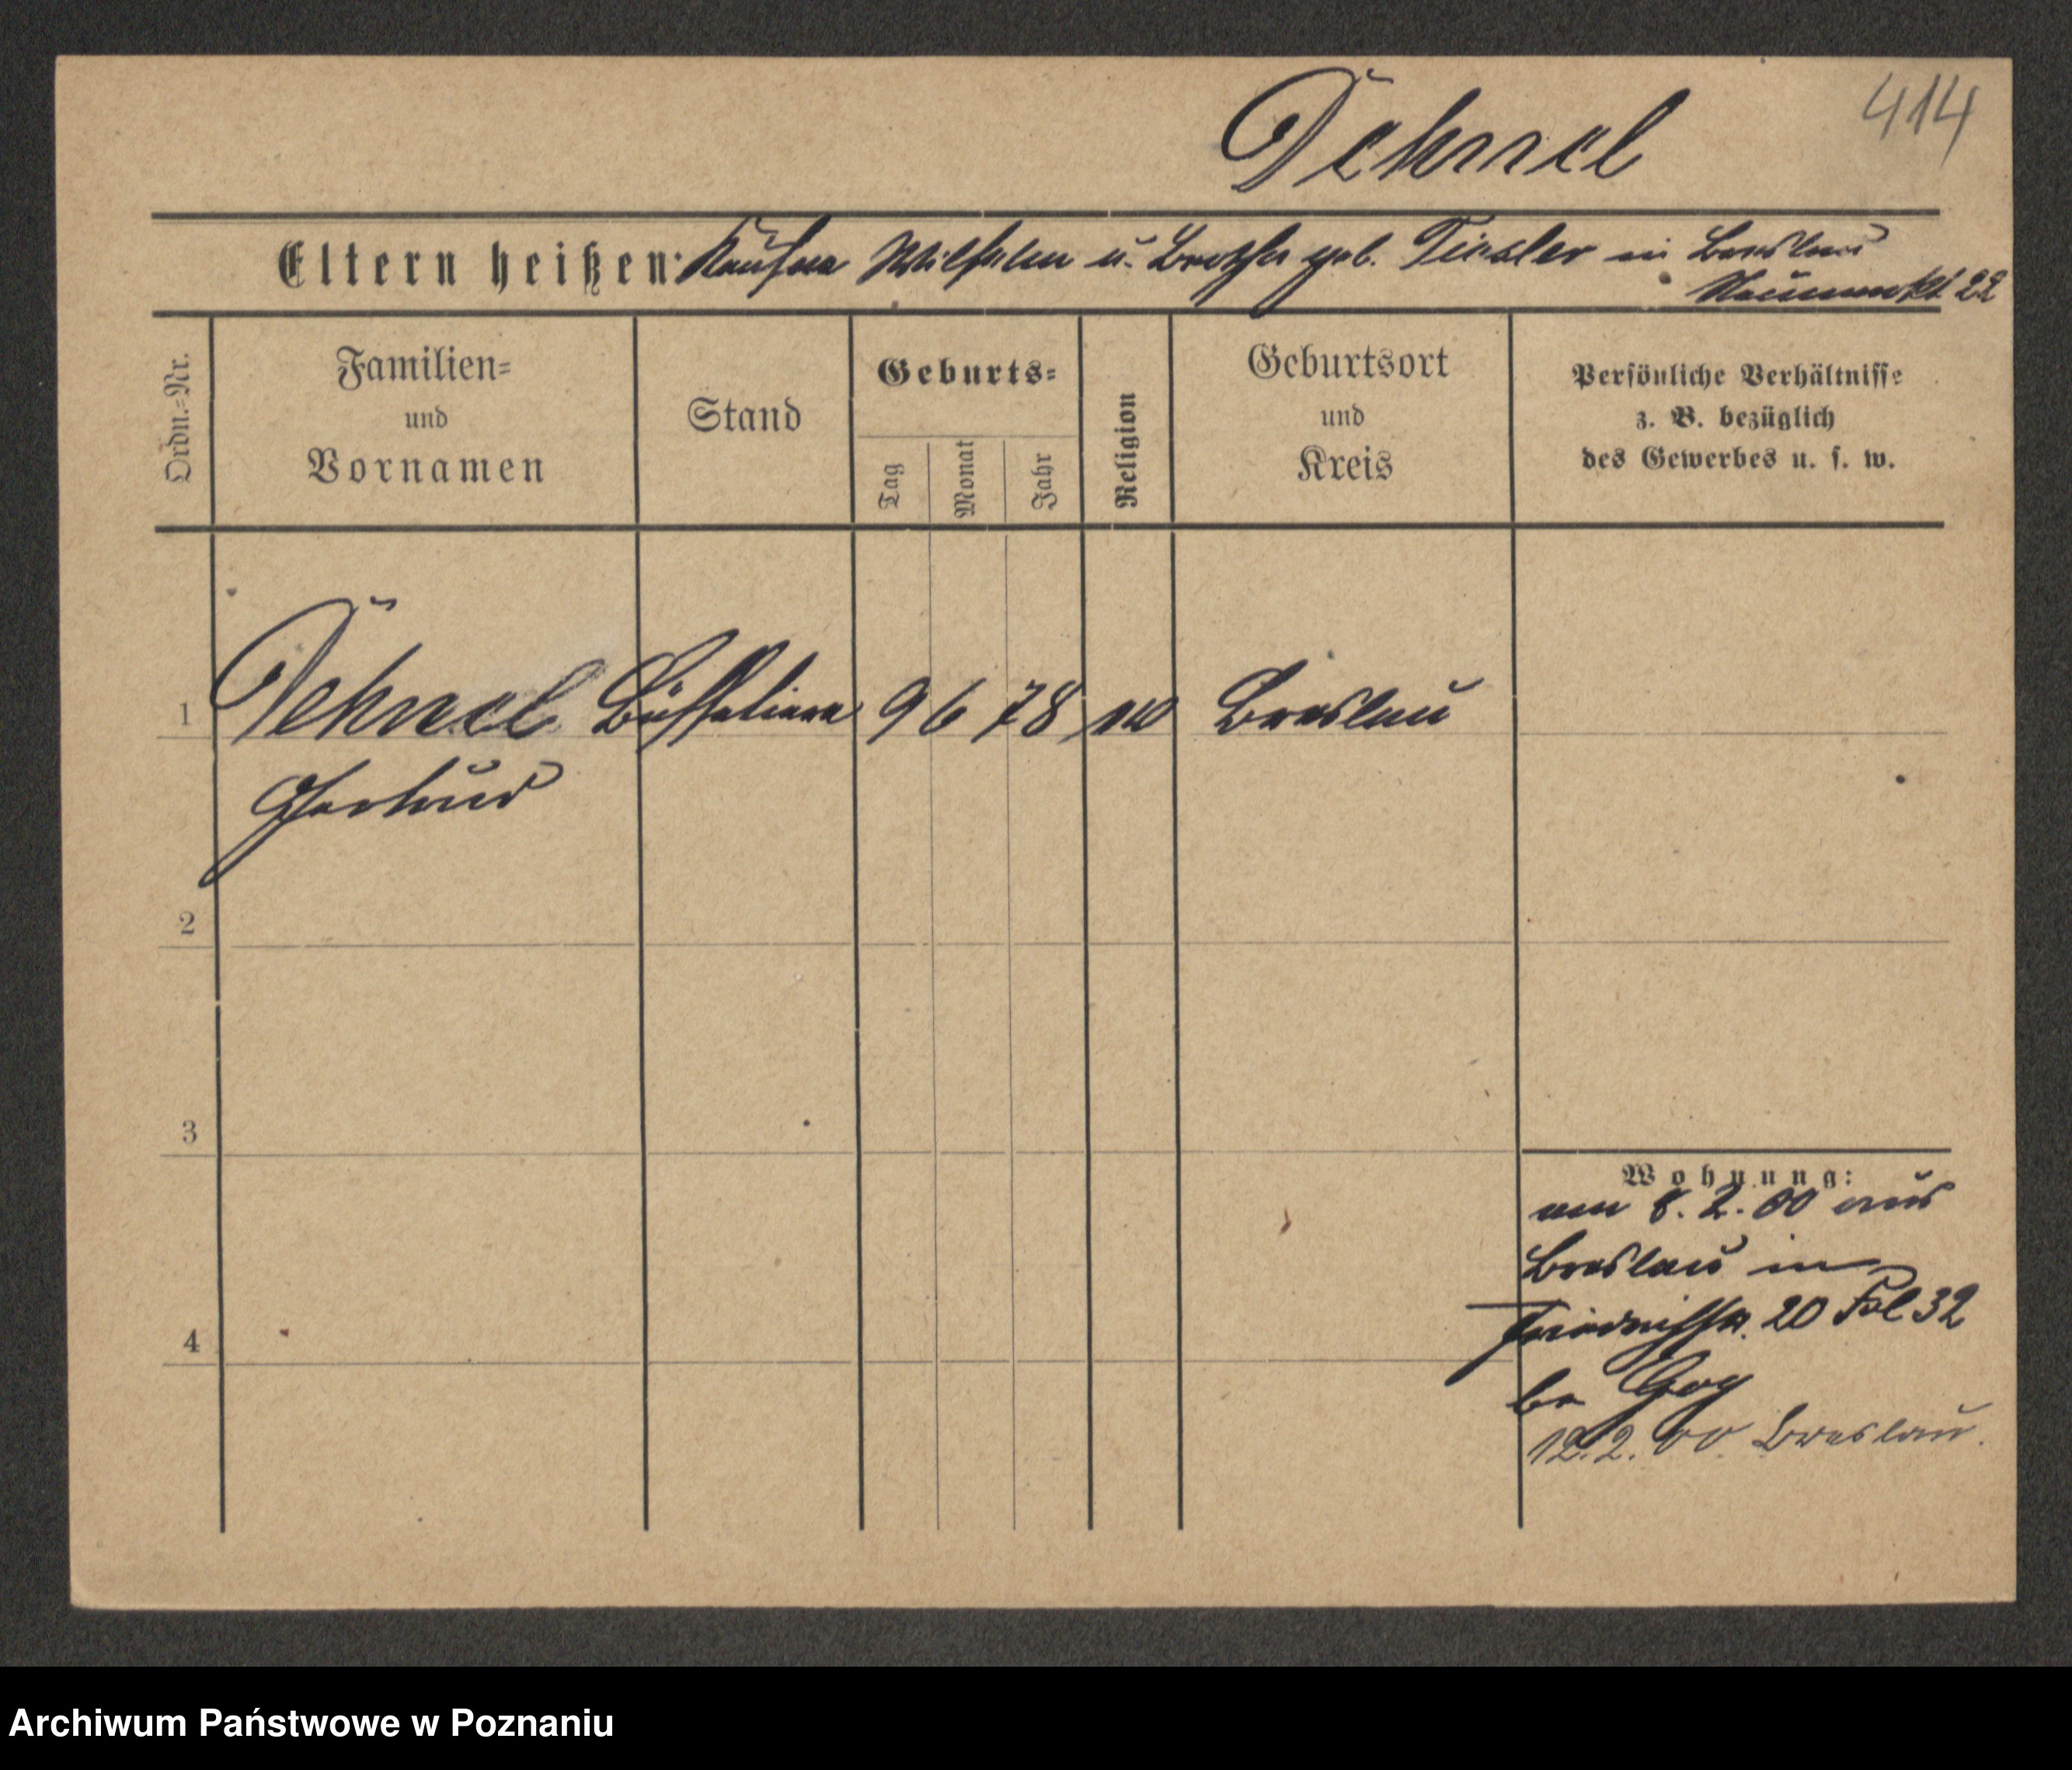 414
Dehnel
Eltern heißen: Kaufm Wilhelm u. Bertha geb. Tiesler in Breslau
Neumarkt 22
Ordn.=Nr.
Familien=
und
Vornamen
Stand
Geburts=
Tag
Monat
Jahr
Religion
Geburtsort
und
Kreis
Persönliche Verhältnisse
z. B. bezüglich
des Gewerbes u. s. w.
1 Dehnel 9 6 78 Breslau
Gertrud
2
3
4
Wohnung:
am 8. 2. 00 aus
Breslau in
20 32
be
12. 2. 00 Breslau.
Archiwum Państwowe w Poznaniu